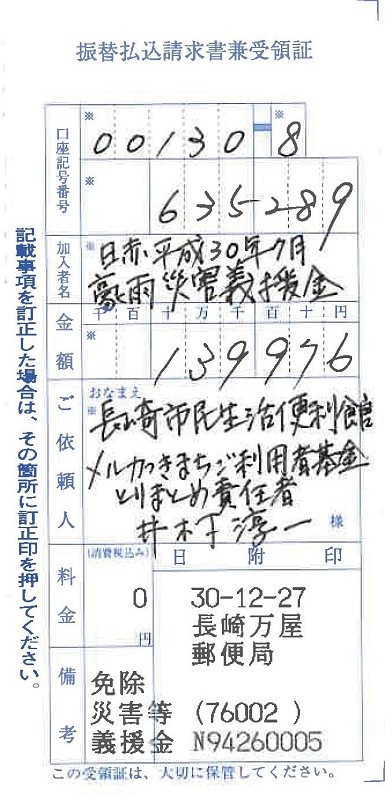 振替払込請求書兼受領証
口座記号番号
※ ※
00130-8
※
635289
加入者名
※ 日赤平成30年7月
豪雨災害義援金
金額
千 百 十 万 千 百 十 円
※
139976
ご依頼人
おなまえ
※ 長崎市民生活便利館
メルカつきまちご利用者基金
とりまとめ責任者
井木下淳一 様
料金
(消費税込み)
0
円
日 附 印
30-12-27
長崎万屋
郵便局
備考
免除
災害等 (76002 )
義援金 N94260005
記載事項を訂正した場合は、その箇所に訂正印を押してください。
この受領証は、大切に保管してください。